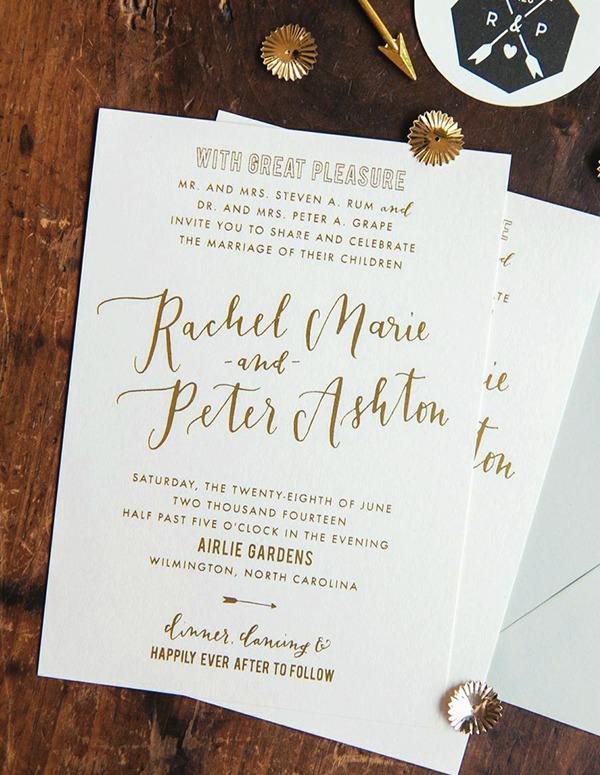 R & P
WITH GREAT PLEASURE
MR. AND MRS. STEVEN A. RUM and
DR. AND MRS. PETER A. GRAPE
INVITE YOU TO SHARE AND CELEBRATE
THE MARRIAGE OF THEIR CHILDREN
Rachel Marie
-and-
Peter Ashton
SATURDAY, THE TWENTY-EIGHTH OF JUNE
TWO THOUSAND FOURTEEN
HALF PAST FIVE O'CLOCK IN THE EVENING
AIRLIE GARDENS
WILMINGTON, NORTH CAROLINA
dinner, dancing &
HAPPILY EVER AFTER TO FOLLOW